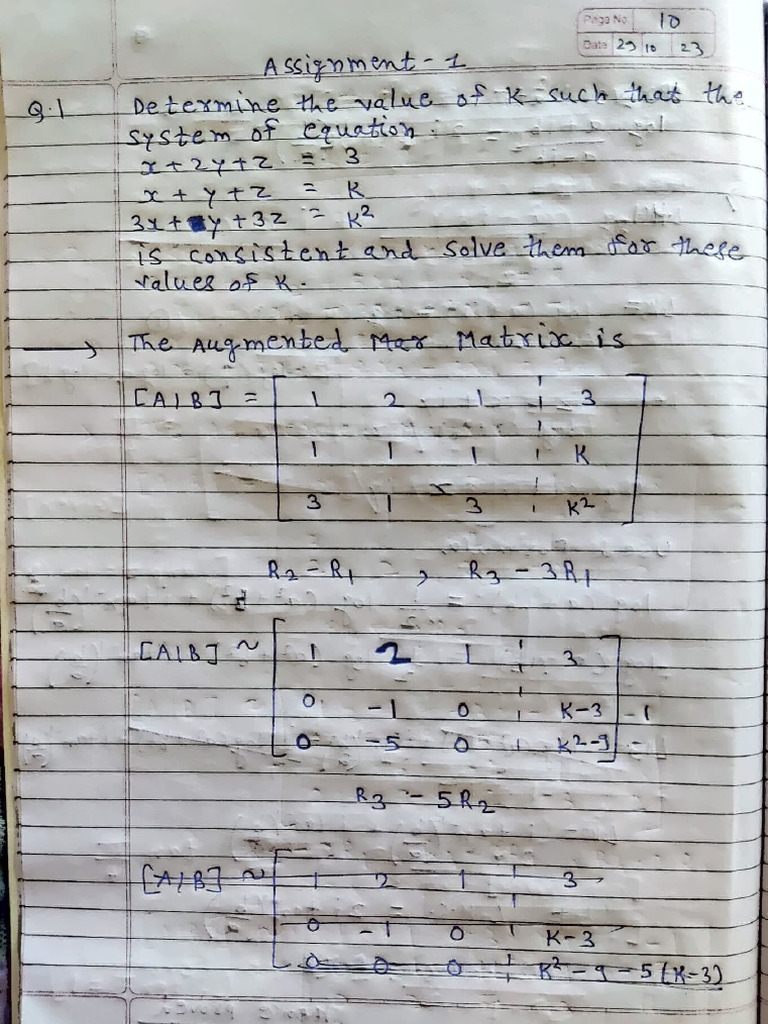 Page No. 10
Date 29 10 23
Assignment - 1
Q.1 Determine the value of K such that the
system of equation.
x + 2y + z = 3
x + y + z = K
3x + y + 3z = K²
is consistent and solve them for these
values of K.
→ The Augmented Mar Matrix is
[A|B] = [ 1 2 1 ¦ 3
1 1 1 ¦ K
3 1 3 ¦ K² ]
R₂ - R₁ , R₃ - 3R₁
[A|B] ~ [ 1 2 1 ¦ 3
0 -1 0 ¦ K-3
0 -5 0 ¦ K²-9 ]
R₃ - 5R₂
[A|B] ~ [ 1 2 1 ¦ 3
0 -1 0 ¦ K-3
0 0 0 ¦ K² - 9 - 5(K-3)